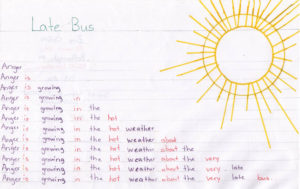 Late Bus
Anger
Anger is
Anger is growing
Anger is growing in
Anger is growing in the
Anger is growing in the hot
Anger is growing in the hot weather
Anger is growing in the hot weather about
Anger is growing in the hot weather about the
Anger is growing in the hot weather about the very
Anger is growing in the hot weather about the very late
Anger is growing in the hot weather about the very late bus